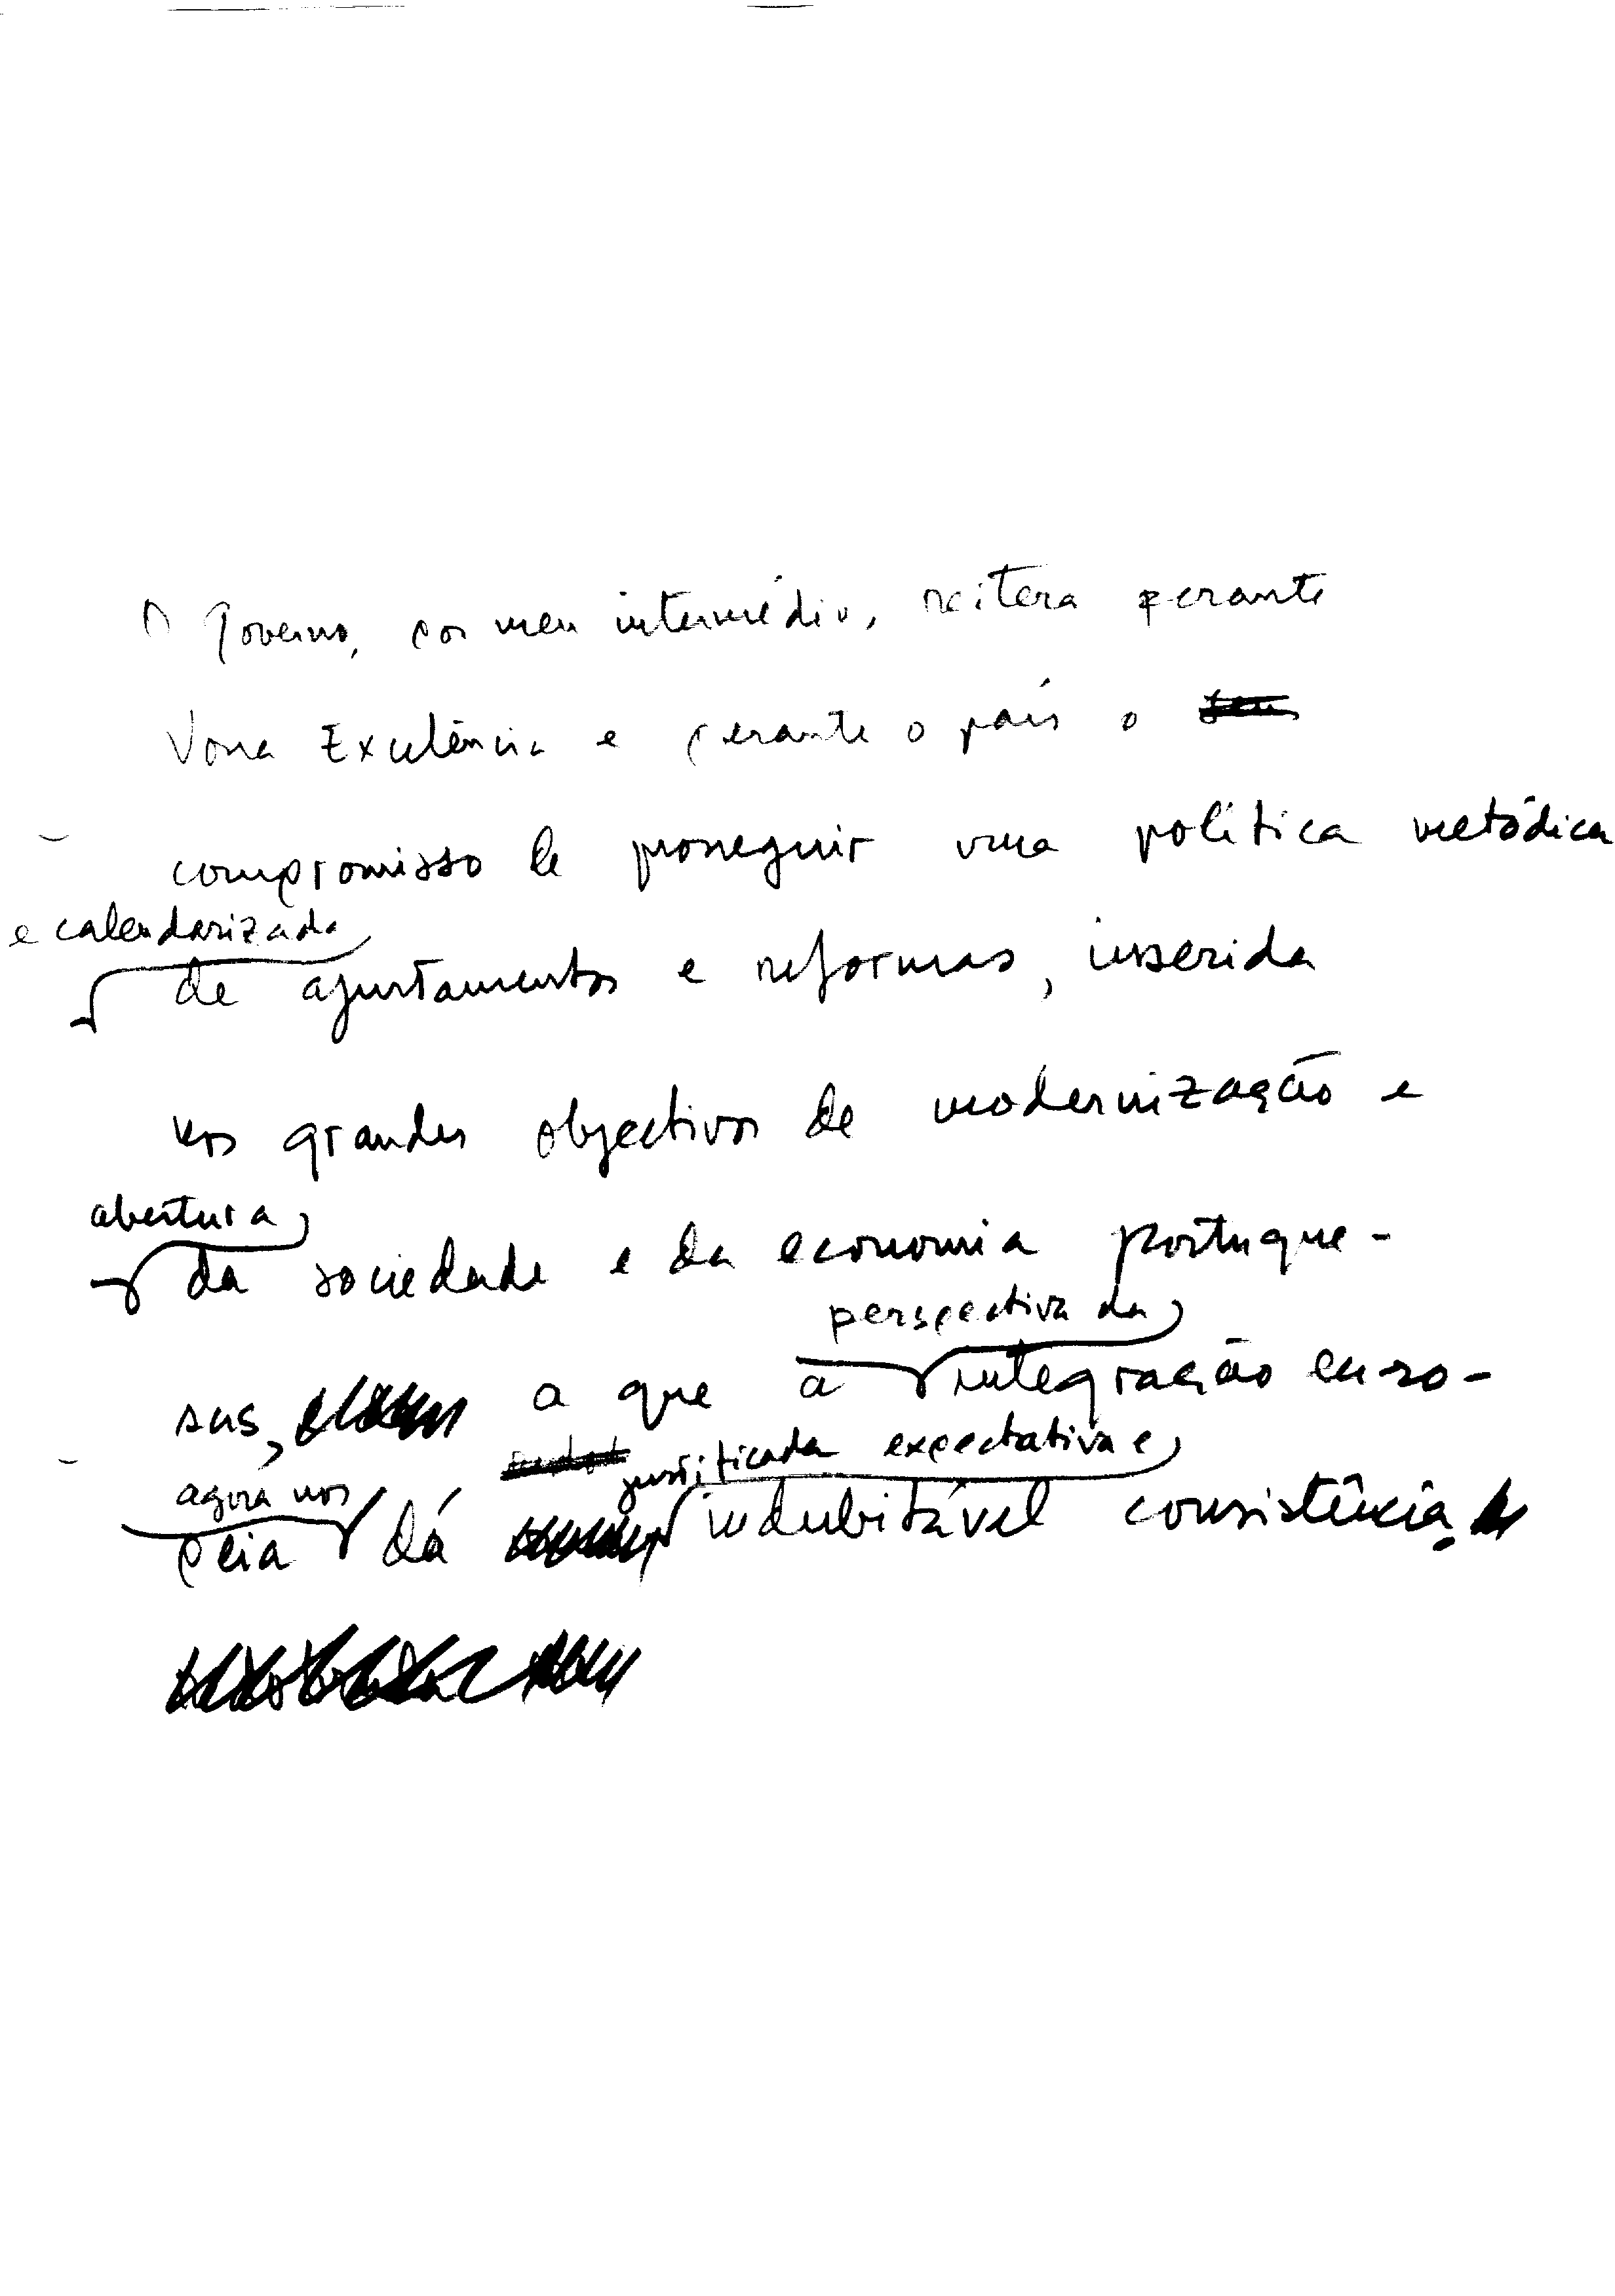 O Governo, por meu intermédio, reitera perante
Vossa Excelência e perante o país o seu
compromisso de prosseguir uma política metódica
e calendarizada
de ajustamentos e reformas, inserida
nos grandes objectivos de modernização e
abertura
da sociedade e da economia portugue-
perspectiva da
sas, a que a integração euro-
justificada expectativa e
agora nos
peia dá indubitável consistência.